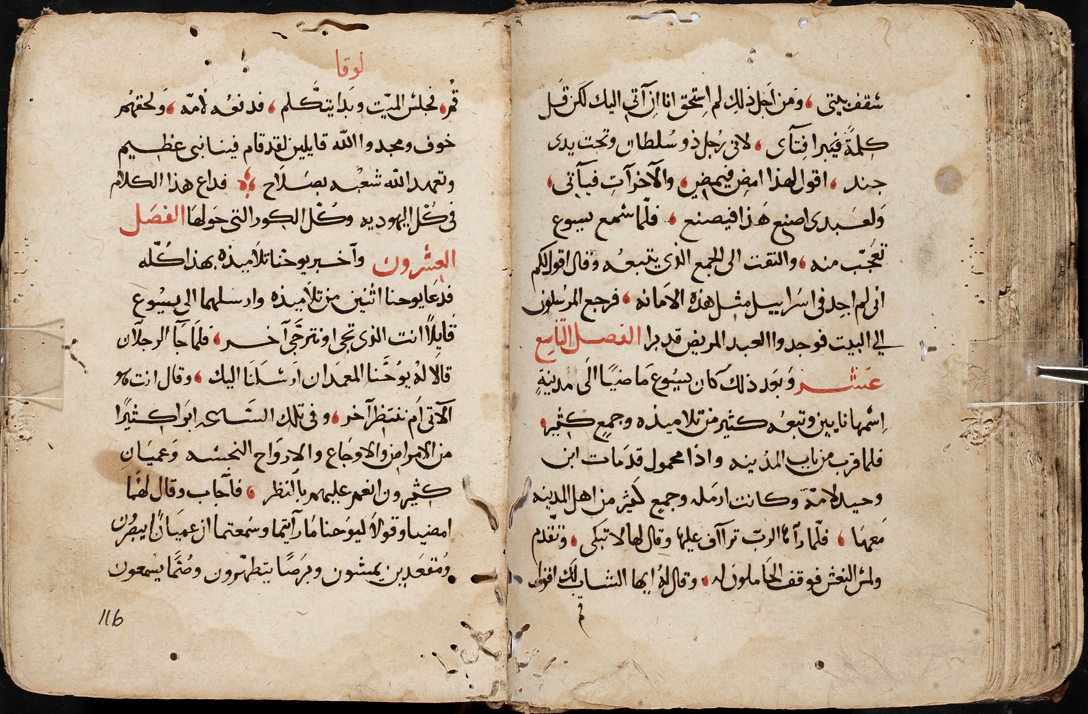 سقف بيتى ، ومن اجل ذلك لم استحق انا ان آتي اليك لكن قل
كلمة فيبرا فتآى ، لانى رجل ذو سلطان وتحت يدى
جند ، اقول لهذا امض فيمضي ، والآخر آت فيأتى ،
ولعبدى اصنع هذا فيصنع ، فلما سمع يسوع
تعجب منه ، والتفت الى الجمع الذى يتبعه وقال اقول لكم
انى لم اجد فى اسراييل مثل هذه الامانه ، فرجع المرسلون
الى البيت فوجدوا العبد المريض قد برا الفصل التاسع
عشر وبعد ذلك كان يسوع ماضيًا الى مدينةٍ
اسمها نايين وتبعه كثير من تلاميذه وجمع كثير ،
فلما قرب من باب المدينه واذا محمول قد مات ابن
وحيد لامه وكانت ارمله وجمع كثير من اهل المدينه
معها ، فلما رآها الرب تراآف عليها وقال لها لا تبكى ، وتقدم
ولمس النعش فوقف الحاملون له ، وقال له ايها الشاب لك اقول
قم
لوقا
قم ، فجلس الميت وبدا يتكلم ، فدفعه لامه ، ولحقهم
خوف ومجدوا الله قايلين لقد قام فينا نبى عظيم
وتعهد الله شعبه بصلاح فداع هذا الكلام
فى كل اليهوديه وكل الكور التى حولها الفصل
العشرون وآخبر يوحنا تلاميذه بهذا كله
فدعا يوحنا اثنين من تلاميذه وارسلهما الى يسوع
قايلاً انت الذى تجى او نترجى آخر ، فلما جآ الرجلان
قالا له يوحنا المعمدان ارسلنا اليك ، وقال انت
الآتى ام ننتظر آخر ، وفى تلك الساعه ابرا كثيرًا
من الامراض والاوجاع والارواح النجسه وعميان
كثيرون انعم عليهم بالنظر ، فآجاب وقال لهما
امضيا وقولا ليوحنا ما رآيتما وسمعتما ان عميانًا يبصرون
ومقعدين يمشون وبرصًا يتطهرون وصمًّا يسمعون
116